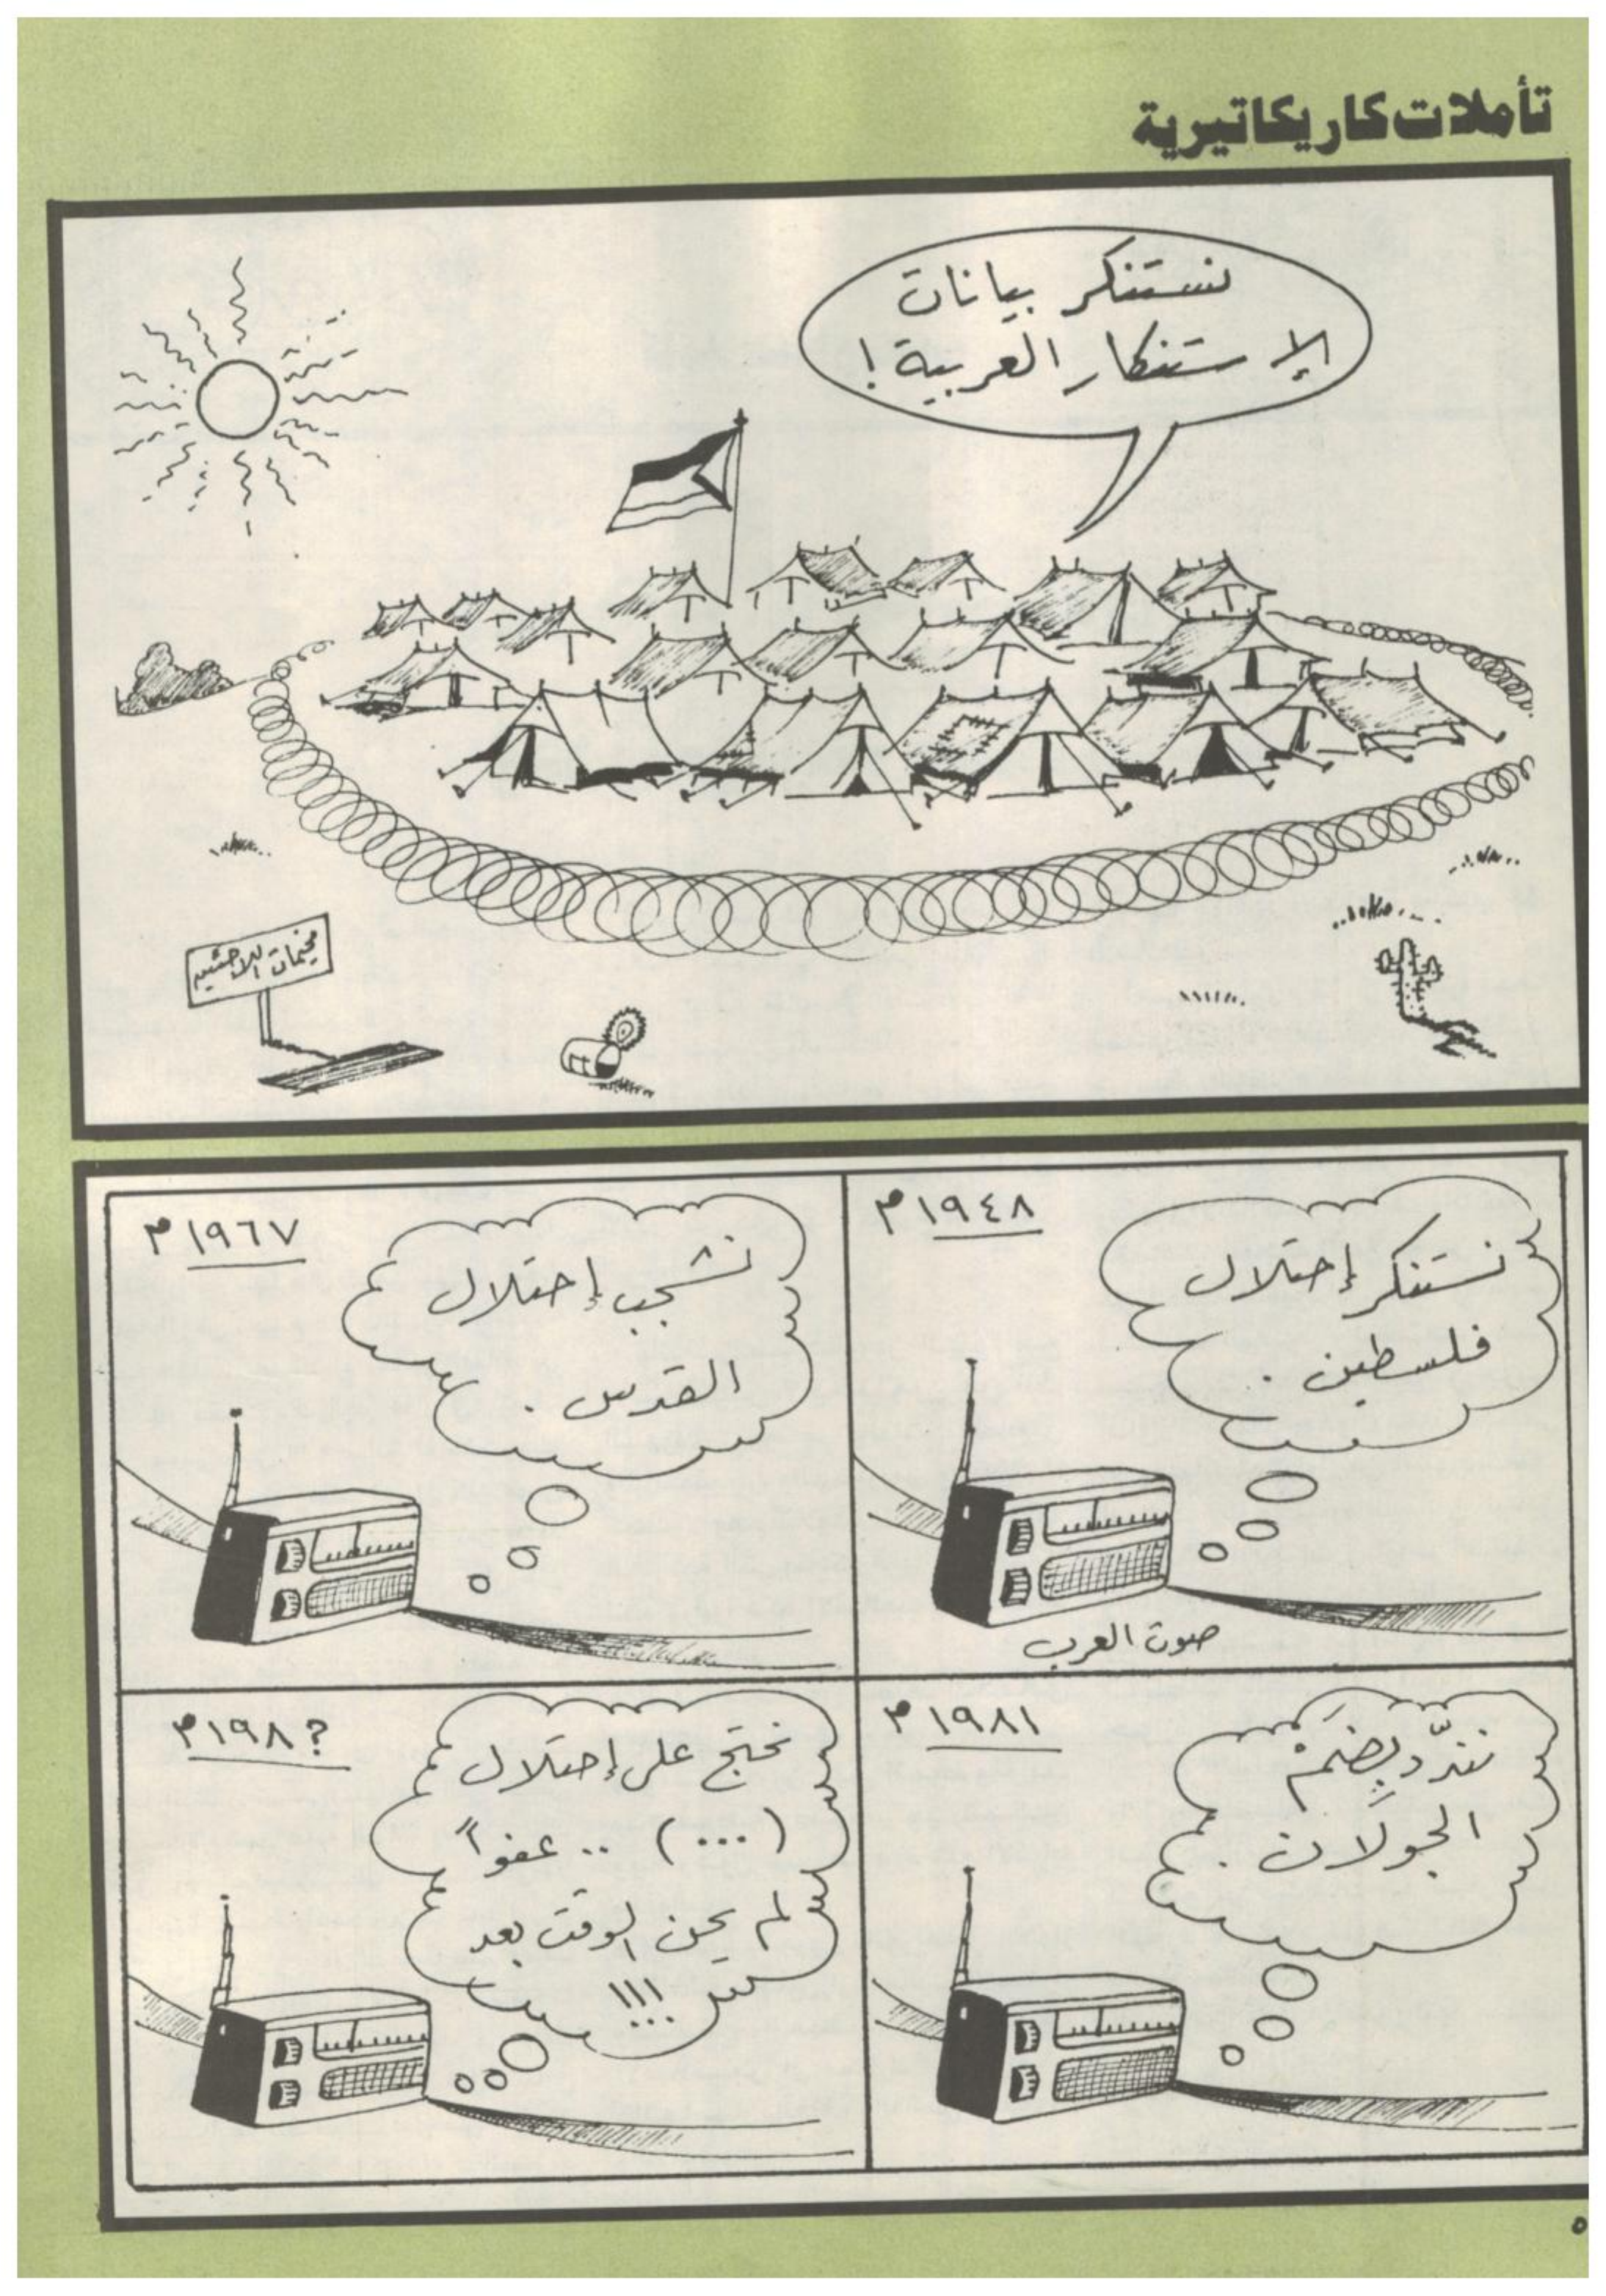 تأملات كاريكاتيرية
نستنكر بيانات
الإستنكار العربية !
مخيمات اللاجئين
١٩٤٨م
نستنكر إحتلال
فلسطين .
صوت العرب
١٩٦٧م
نشجب إحتلال
القدس .
١٩٨١م
نندّد بِضَمْ
الجولان .
١٩٨؟م
نحتج على إحتلال
(...) .. عفواً
لم يحن الوقت بعد
!!!
٥